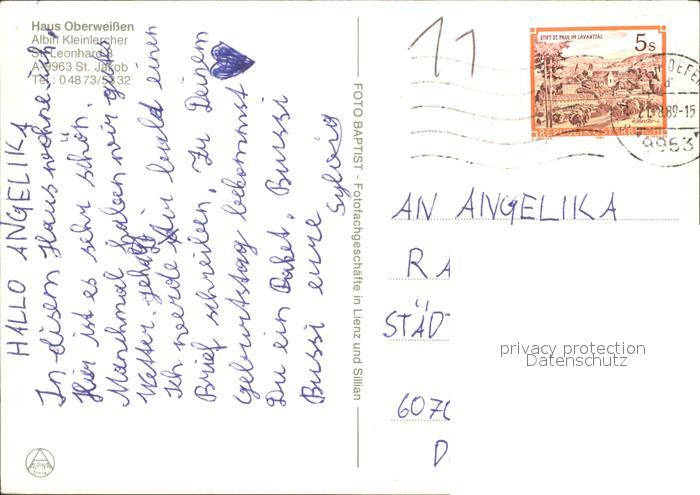 Haus Oberweißen
Albin Kleinlercher
St. Leonhard
A-9963 St. Jakob
Tel.: 04873/5332
HALLO ANGELIKA
In disem Haus wohne ich.
Hier ist es sehr schön.
Manchmal haben wir gutes
Wetter gehabt
Ich werde dir bald einen
Brief schreiben. Zu Deinem
Geburtstag bekommst
Du ein Paket. Bussi
Bussi eure
Sylvia
ALPINA
FOTO BAPTIST - Fotofachgeschäfte in Lienz und Sillian
11
STIFT ST. PAUL IM LAVANTTAL
5s
REPUBLIK ÖSTERREICH
89-15
9963
AN ANGELIKA
RA
STÄD
607
D
privacy protection
Datenschutz